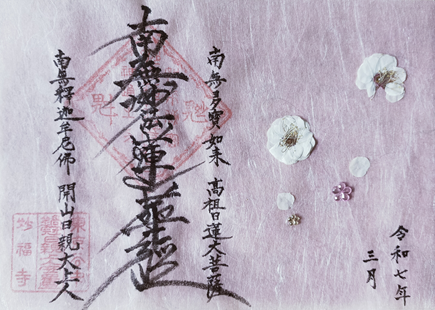 令和七年
三月
南無多寶如来 高祖日蓮大菩薩
南無妙法蓮華経
南無釋迦牟尼佛 開山日親大上人
妙福寺